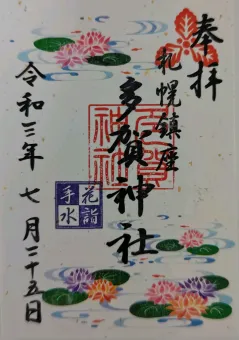 奉拝
札幌鎮座
多賀神社
花詣
手水
令和三年七月二十五日